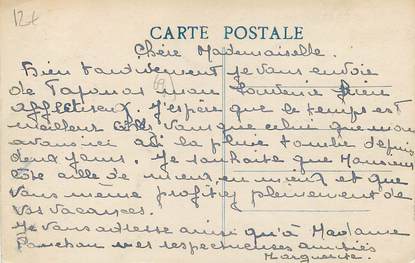 12€
CARTE POSTALE
Chère Mademoiselle.
Bien tardivement je vous envoie
de Taponas mon souvenir bien
affectueux. J'espère que le temps est
meilleur chez vous que celui que nous
avons ici où la pluie tombe depuis
deux jours. Je souhaite que Monsieur
aille de mieux en mieux et que
vous même profitez pleinement de
vos vacances.
Je vous adresse ainsi qu'à Madame
mes respectueuses amitiés
Marguerite.